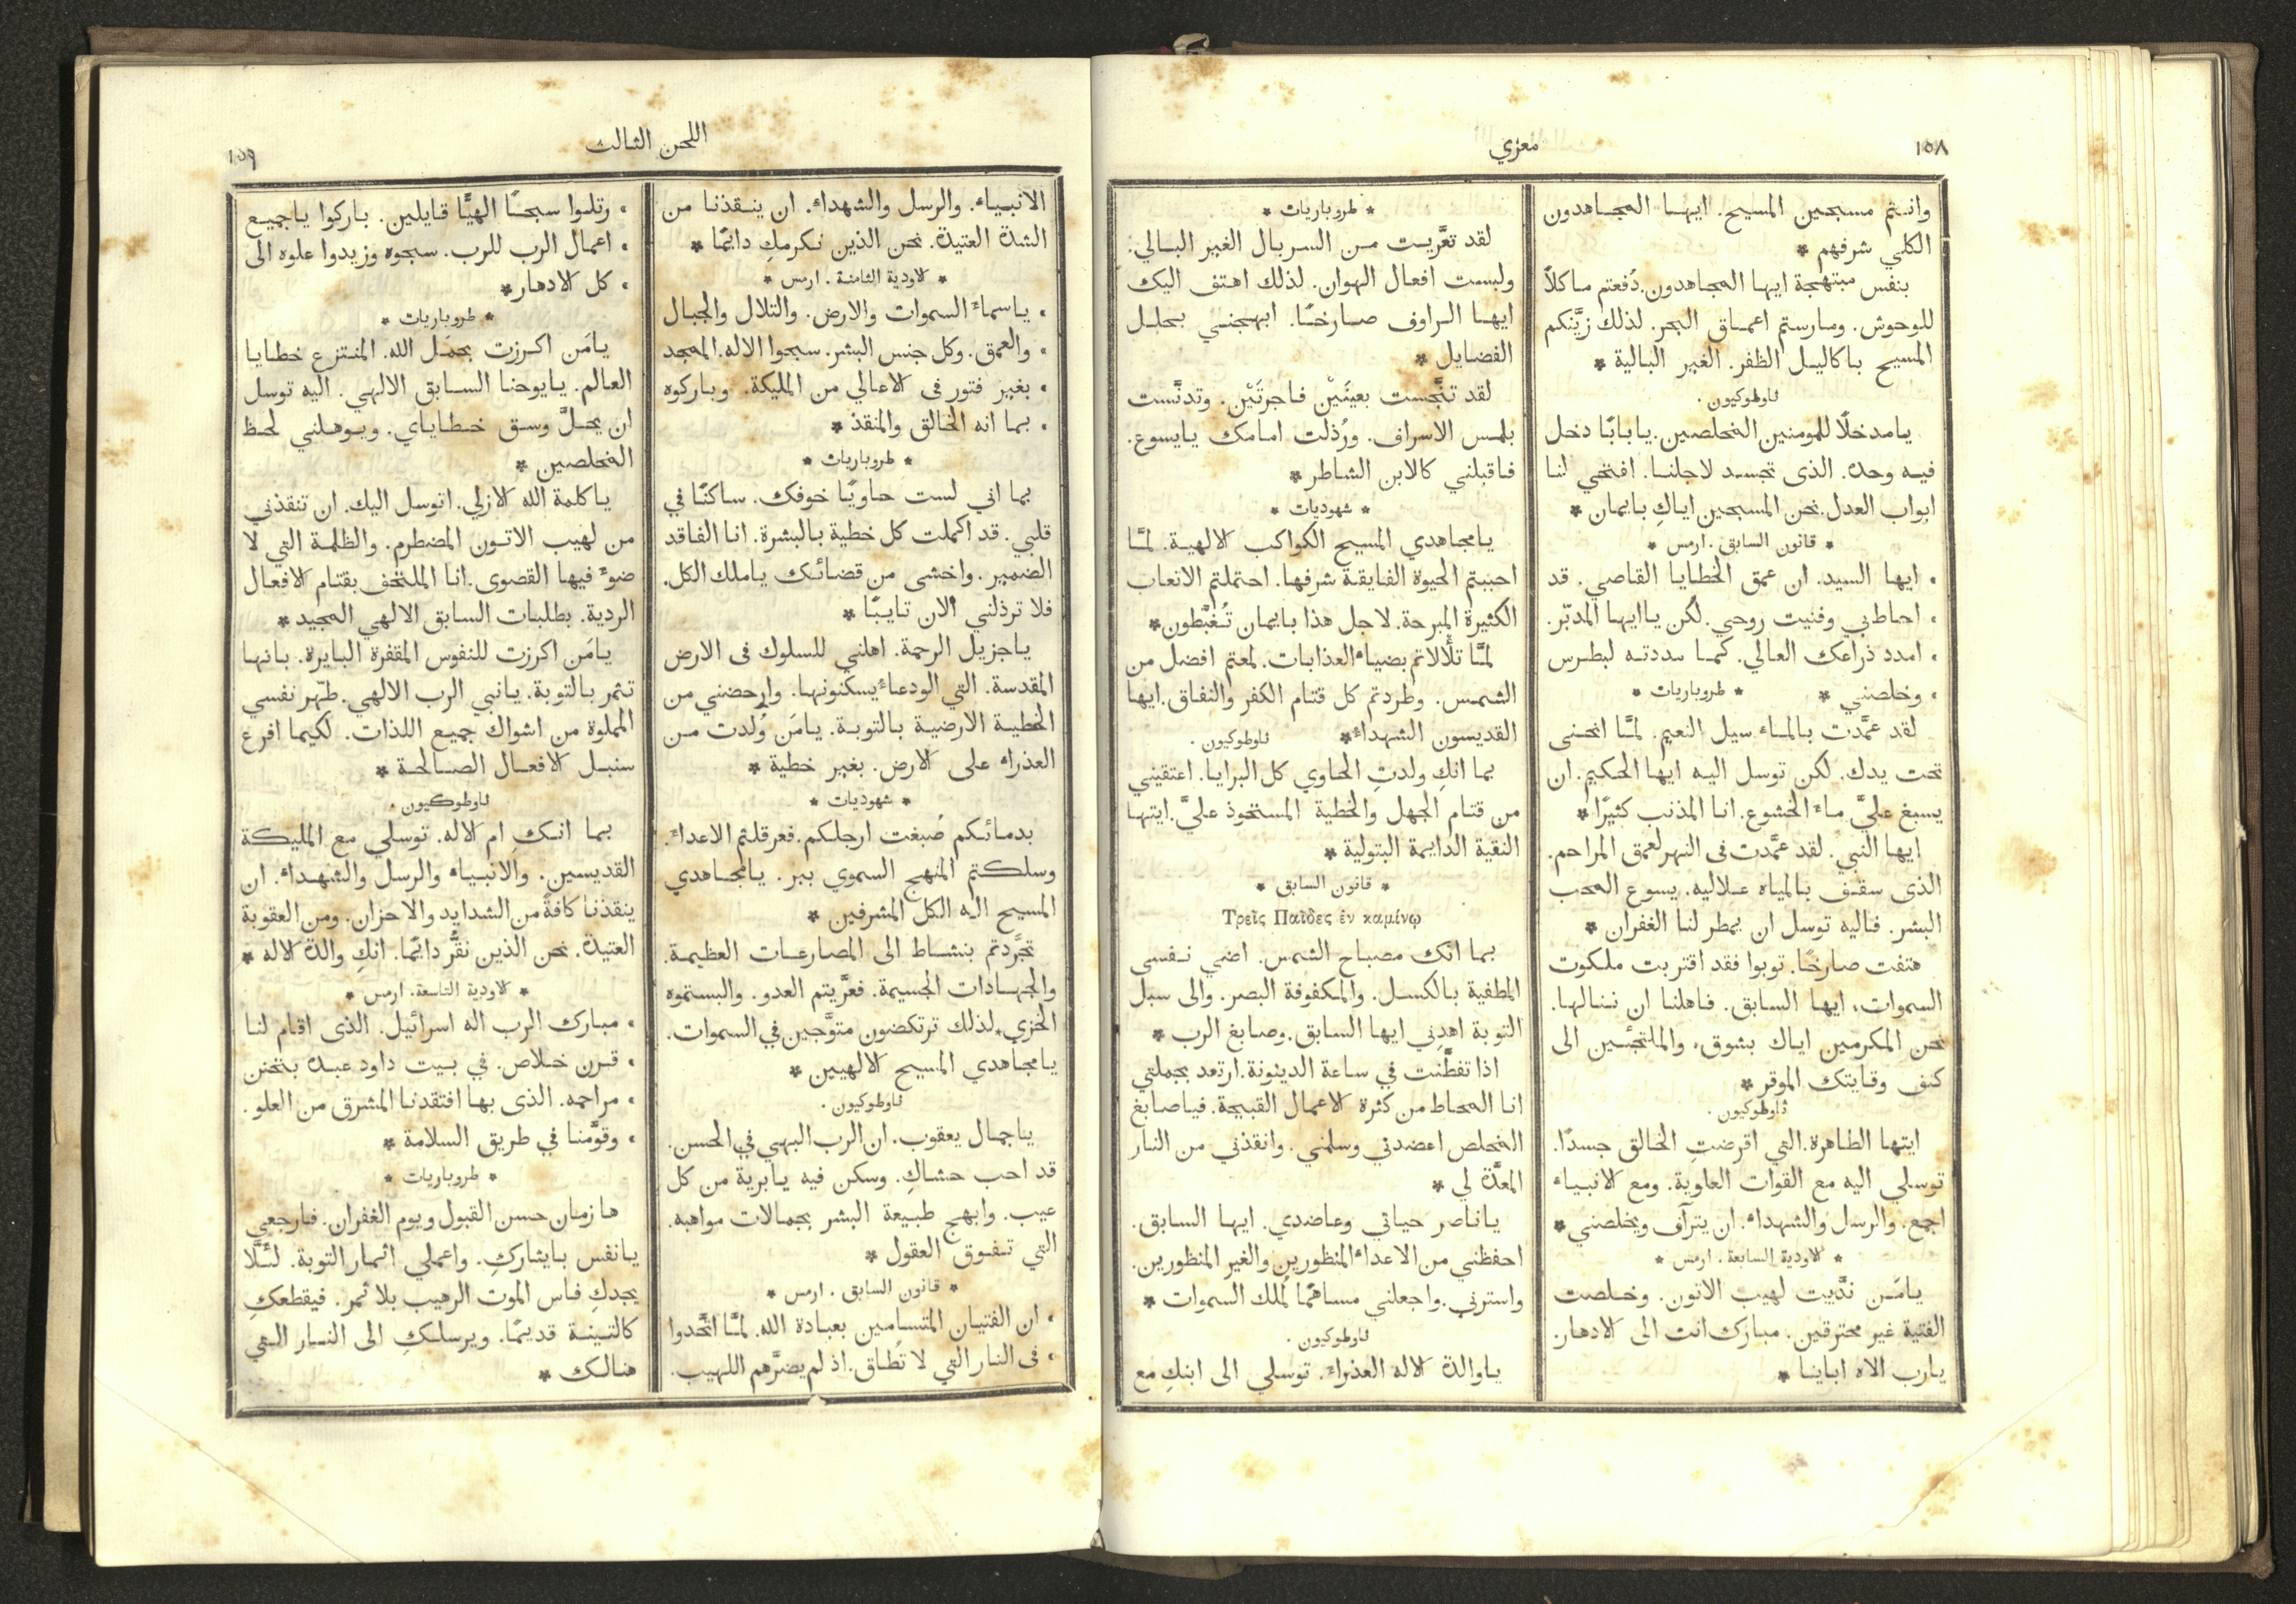 ١٥٨
معزي
وانتم مسبحين المسيح. ايها المجاهدون
الكلي شرفهم *
بنفس مبتهجة ايها المجاهدون. دُفعتم ماكلاً
للوحوش. ومارستم اعماق البحر. لذلك زيَّنكم
المسيح باكاليل الظفر. الغير البالية *
ثاوطوكيون.
يامدخلًا للمومنين المخلصين. يا بابًا دخل
فيه وحده. الذى تجسد لاجلنا. افتحي لنا
ابواب العدل. نحن المسبحين اياكِ بايمان *
* قانون السابق. ارمس *
، ايها السيد. ان عمق الخطايا القاصي. قد
، احاط بي وفنيت روحي. لكن ياايها المدبّر.
، امدد ذراعك العالي. كما مددته لبطرس
، وخلصني * * طروباريات *
لقد عمَّدت بالماء سيل النعيم. لمَّا انحنى
تحت يدك. لكن توسل اليه ايها الحكيم. ان
يسبغ عليَّ ماء الخشوع. انا المذنب كثيرًا *
ايها النبي. لقد عمَّدت فى النهر لعمق المراحم.
الذى سقف بالمياه علاليه. يسوع المحب
البشر. فاليه توسل ان يمطر لنا الغفران *
هتفت صارخًا. توبوا فقد اقتربت ملكوت
السموات، ايها السابق. فاهلنا ان ننالها.
نحن المكرمين اياك بشوق، والملتجئين الى
كنف وقايتك الموقر *
ثاوطوكيون.
ايتها الطاهرة. التي اقرضتِ الخالق جسدًا.
توسلي اليه مع القوات العلوية. ومع الانبياء
اجمع. والرسل والشهداء. ان يترآف ويخلصني *
* الاودية السابعة. ارمس *
يامَن ندَّيت لهيب الاتون. وخلصت
الفتية غير محترقين. مبارك انت الى الادهار.
يارب الاه اباينا *
* طروباريات *
لقد تعرَّيت من السربال الغير البالي.
ولبست افعال الهوان. لذلك اهتف اليك
ايها الراوف صارخًا. ابهجني بحلل
الفضايل *
لقد تنجَّست بعينَيْن فاجرتَيْن. وتدنَّست
بلمس الاسراف. ورُذلت امامك يايسوع.
فاقبلني كالابن الشاطر *
* شهوديات *
يامجاهدي المسيح الكواكب الالهية. لمَّا
احببتم الحيوة الفايقة شرفها. احتملتم الاتعاب
الكثيرة المبرحة. لاجل هذا بايمان تُغبَّطون *
لمَّا تلألأتم بضياء العذابات. لمعتم افضل من
الشمس. وطردتم كل قتام الكفر والنفاق. ايها
القديسون الشهداء * ثاوطوكيون.
بما انكِ ولدتِ الحاوي كل البرايا. اعتقيني
من قتام الجهل والخطية المستحوذ عليَّ. ايتها
النقية الدايمة البتولية *
* قانون السابق *
Τρεῖς Παῖδες ἐν καμίνῳ
بما انك مصباح الشمس. اضي نفسى
المطفية بالكسل. والمكفوفة البصر. والى سبل
التوبة اهدِني ايها السابق. وصابغ الرب *
اذا تفطَّنت في ساعة الدينونة. ارتعد بجملتي
انا المحاط من كثرة الاعمال القبيحة. فياصابغ
المخلص اعضدني وسلمني. وانقذني من النار
المعدَّة لي *
ياناصر حياتي وعاضدي. ايها السابق.
احفظني من الاعداء المنظورين والغير المنظورين.
واسترني. واجعلني مساهمًا لملك السموات *
ثاوطوكيون.
ياوالدة الاله العذراء. توسلي الى ابنكِ مع
اللحن الثالث
١٥٩
الانبياء. والرسل والشهداء. ان ينقذنا من
الشدة العتيدة. نحن الذين نكرمكِ دائمًا *
* الاودية الثامنة. ارمس *
، ياسماء السموات والارض. والتلال والجبال
، والعمق. وكل جنس البشر. سبحوا الاله. الممجد
، بغير فتور فى الاعالي من المليكة. وباركوه
، بما انه الخالق والمنقذ *
* طروباريات *
بما اني لست حاويًا خوفك. ساكنًا في
قلبي. قد اكملت كل خطية بالبشرة. انا الفاقد
الضمير. واخشى من قضائك ياملك الكل.
فلا ترذلني الان تايبًا *
ياجزيل الرحمة. اهلني للسلوك فى الارض
المقدسة. التي الودعاء يسكنونها. وارحضني من
الخطية الارضية بالتوبة. يامَن وُلدت من
العذراء على الارض. بغير خطية *
* شهوديات *
بدمائكم صُبغت ارجلكم. فعرقلتم الاعداء.
وسلكتم المنهج السموي ببر. يامجاهدي
المسيح اله الكل المشرفين *
تجرَّدتم بنشاط الى المصارعات العظيمة.
والجهادات الجسيمة. فعرَّيتم العدو. والبستموه
الخزي. لذلك ترتكضون متوَّجين في السموات.
يامجاهدي المسيح الالهيين *
ثاوطوكيون.
ياجمال يعقوب. ان الرب البهي في الحسن.
قد احب حشاكِ. وسكن فيه يابرية من كل
عيب. وابهج طبيعة البشر بجمالات مواهبه.
التي تفوق العقول *
* قانون السابق. ارمس *
، ان الفتيان المتسامين بعبادة الله. لمَّا اتَّحدوا
، فى النار التي لا تُطاق. اذ لم يضرَّهم اللهيب.
، رتلوا سبحًا الهيًّا قايلين. باركوا ياجميع
، اعمال الرب للرب. سبحوه وزيدوا علوه الى
، كل الادهار *
* طروباريات *
يامَن اكرزت بحمَل الله. المنتزع خطايا
العالم. يايوحنا السابق الالهي. اليه توسل
ان يحلَّ وسق خطاياي. ويوهلني لحظ
المخلصين *
ياكلمة الله الازلي. اتوسل اليك. ان تنقذني
من لهيب الاتون المضطرم. والظلمة التي لا
ضوء فيها القصوى. انا الملتحف بقتام الافعال
الردية. بطلبات السابق الالهي المجيد *
يامَن اكرزت للنفوس المقفرة البايرة. بانها
تثمر بالتوبة. يانبي الرب الالهي. طهّر نفسي
المملوة من اشواك جميع اللذات. لكيما افرع
سنبل الافعال الصالحة *
ثاوطوكيون.
بما انكِ ام الاله. توسلي مع المليكة
القديسين. والانبياء والرسل والشهداء. ان
ينقذنا كافةً من الشدايد والاحزان. ومن العقوبة
العتيدة. نحن الذين نقُّر دائمًا. انكِ والدة الاله *
* الاودية التاسعة. ارمس *
، مبارك الرب اله اسرائيل. الذى اقام لنا
، قرن خلاص. في بيت داود عبده بتحنن
، مراحمه. الذى بها افتقدنا المشرق من العلو.
، وقوَّمنا في طريق السلامة *
* طروباريات *
ها زمان حسن القبول ويوم الغفران. فارجعي
يانفس بايثاركِ. واعملي اثمار التوبة. لئلَّا
يجدكِ فاس الموت الرهيب بلا ثمر. فيقطعكِ
كالتينة قديمًا. ويرسلكِ الى النار التي
هنالك *